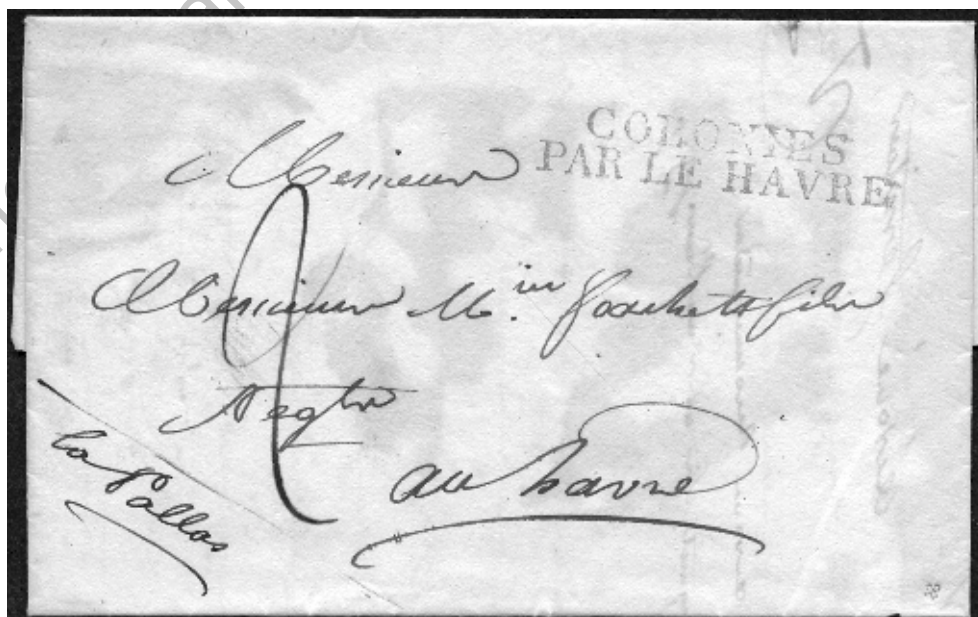 COLONIES
PAR LE HAVRE
Monsieur
Monsieur M.in foucket fils
Negt
au havre
la Pallas